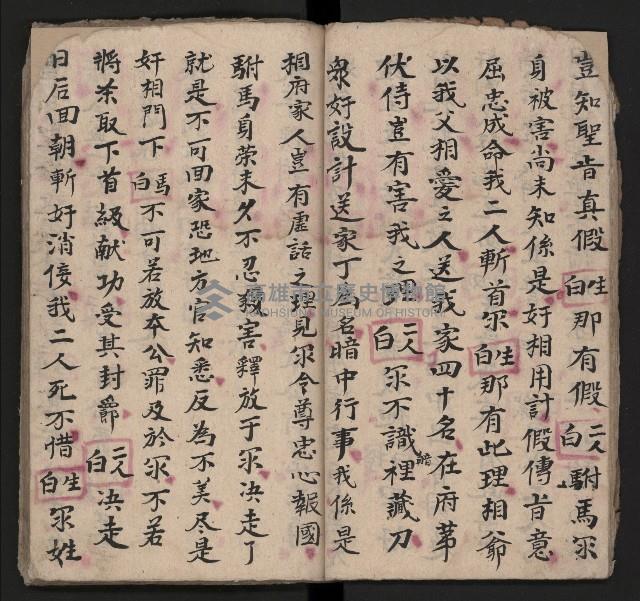 豈知聖旨真假生白那有假二人白駙馬尔
身被害尚未知係是奸相用計假傳旨意
屈忠成命我二人斬首尔生白那有此理相爺
以我父相愛之人送我家四十名在府苐
伏侍豈有害我之理二人白尔不識裡藏刀
衆奸設計送家丁為名暗中行事我係是
相府家人豈有虛話之理見尔令尊忠心報國
駙馬身荣未久不忍害釋放于尔决走了
就是不可回家恐地方官知悉反為不美尽是
奸相門下馬白不可若放本公罪及於尔不若
將吾取下首級献功受其封爵二人白决走
日后回朝斬奸消俀我二人死不惜生白尔姓
高雄市立歷史博物館
KAOHSIUNG MUSEUM OF HISTORY